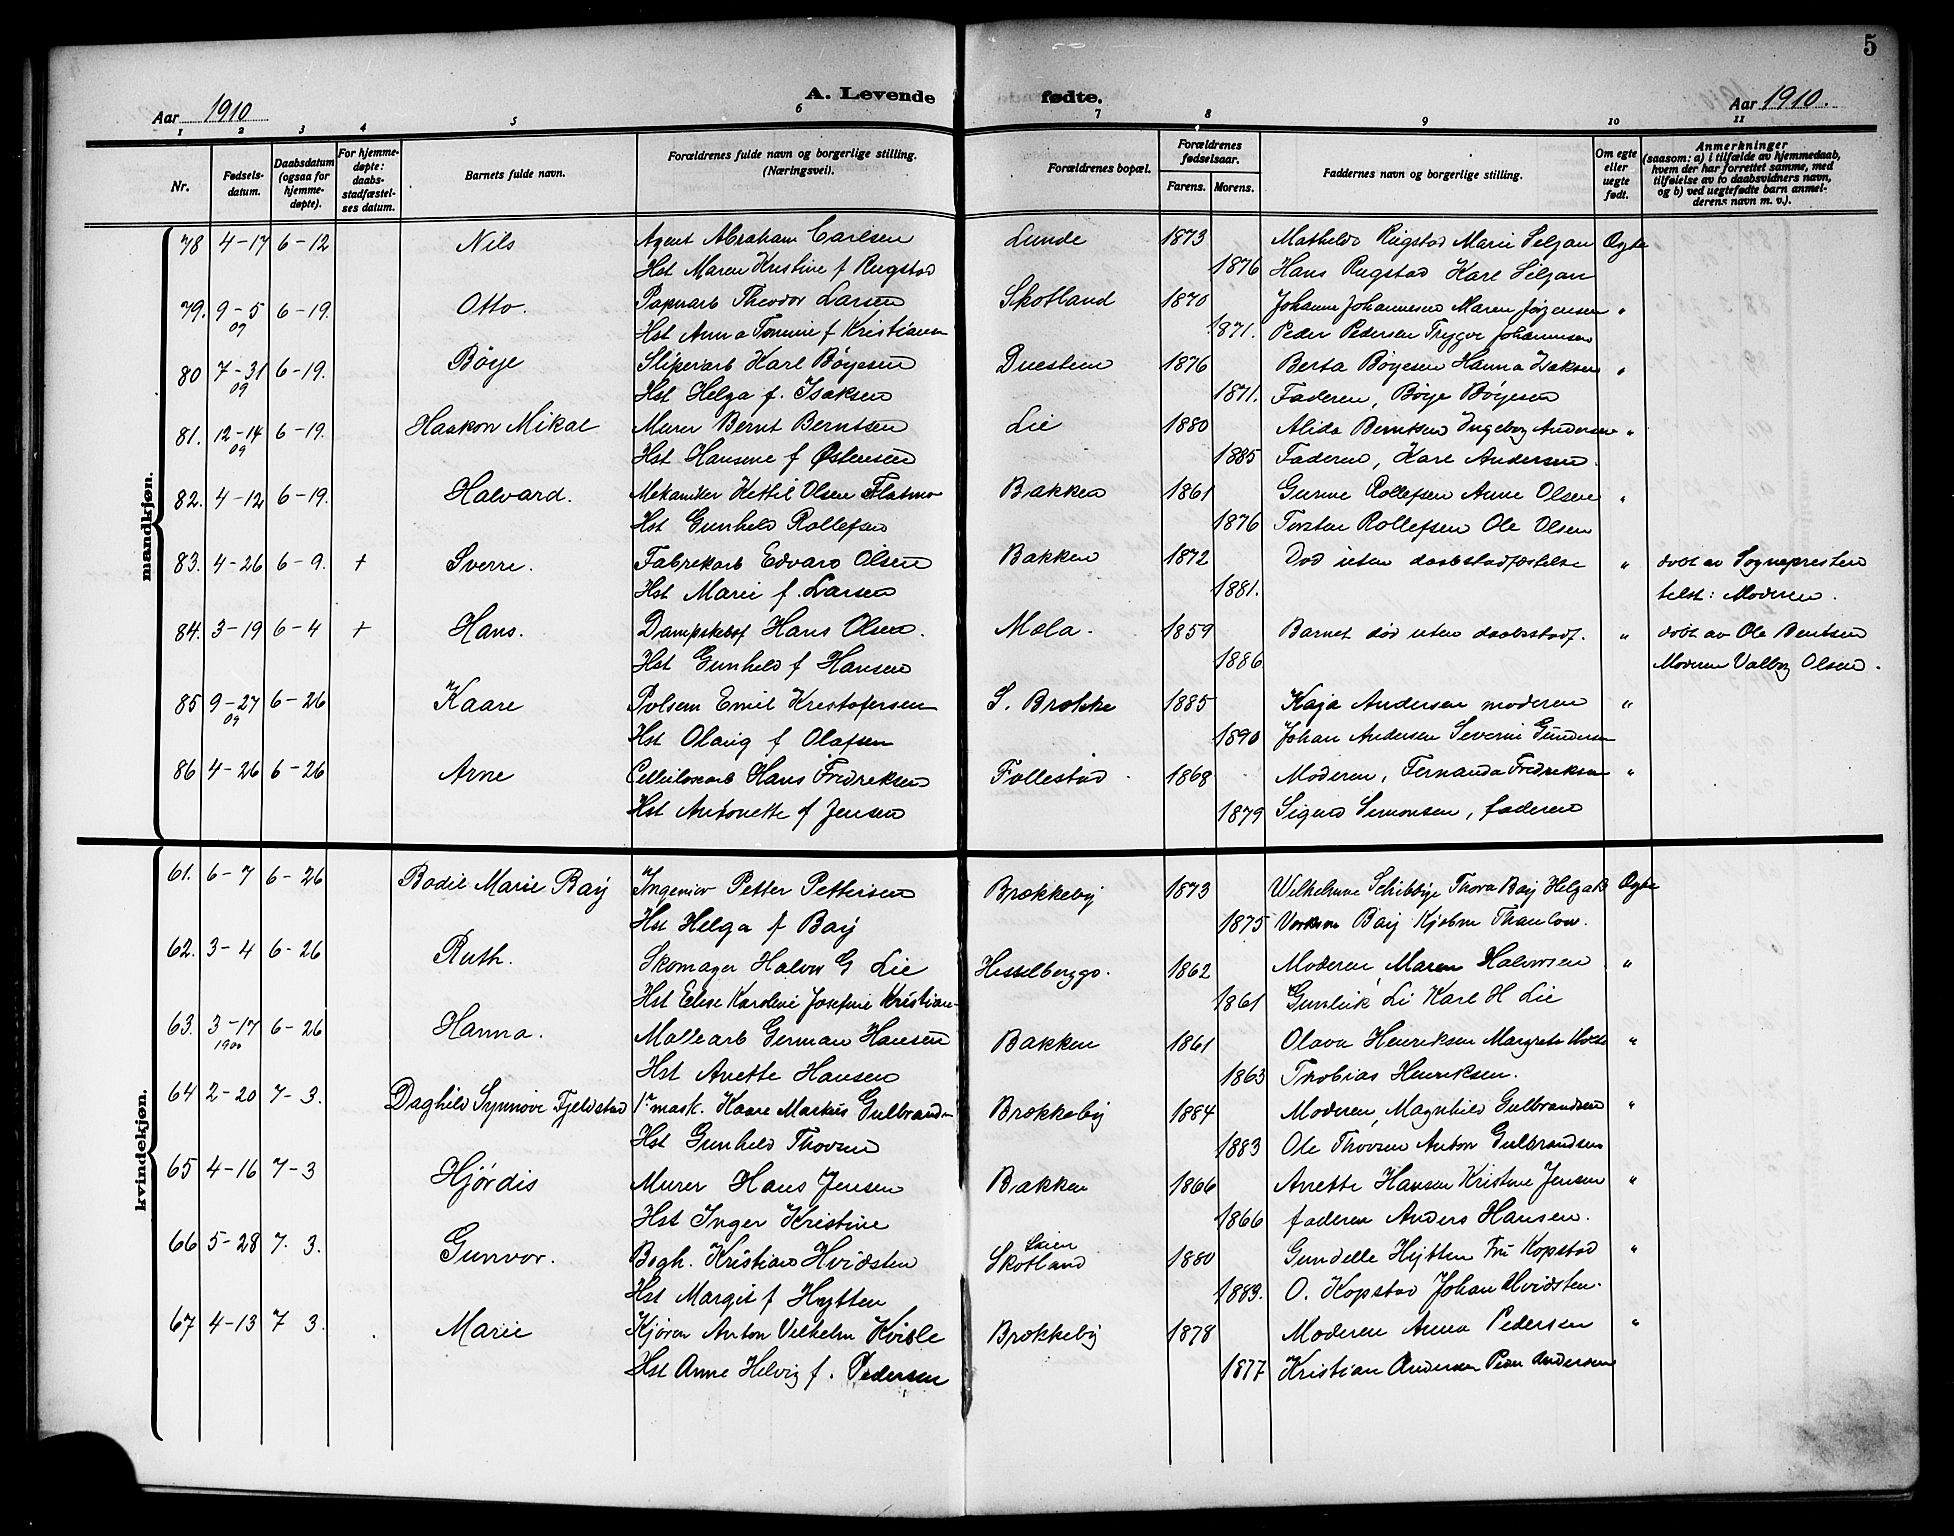 5
A. Levende fødte.
Aar 1910 Aar 1910.
1 2 3 4 5 6 7 8 9 10 11
Nr. Fødsels-datum. Daabsdatum (ogsaa for hjemme-døpte). For hjemme-døpte: daabs-stadfæstel-ses datum. Barnets fulde navn. Forældrenes fulde navn og borgerlige stilling. (Næringsvei). Forældrenes bopæl. Forældrenes fødselsaar. Farens. Morens. Faddernes navn og borgerlige stilling. Om egte eller uegte født. Anmerkninger (saasom: a) i tilfælde av hjemmedaab, hvem der har forrettet samme, med tilføielse av to daabsvidners navn, og b) ved uegtefødte barn anmel-derens navn m. v.).
mandkjøn.
78 4-17 6-12 Nils Agent Abraham Carlsen Lunde 1873 Mathilde Rugstad Marie Seljan Egte
Hst Maren Kristine f Rugstad 1876 Hans Rugstad Karl Seljan
79. 9-5 6-19. Otto. Papirarb Theodor Larsen Skotland 1870 Johanne Johannesen Maren Jørgensen "
09 Hst Anna Tomine f Kristiansen 1871. Peder Pedersen Trygve Johannesen
80 7-31 6-19. Bøye Sliperiarb Karl Bøyesen Duestien 1876 Berta Bøyesen Hanna Isaksen "
09 Hst Helga f. Isaksen 1871. Faderen, Bøye Bøyesen
81. 12-14 6-19. Haakon Mikal Murer Bernt Berntsen Lie 1880 Alida Berntsen Ingeborg Andersen "
09 Hst Hansine f Østensen 1885 Faderen, Karl Andersen.
82. 4-12 6-19. Halvard. Mekaniker Kettil Olsen Flatmo Bakken 1861 Gurine Rollefsen Anne Olsen "
Hst Gunhild Rollefsen 1876 Torsten Rollefsen Ole Olsen
83. 4-26 6-9. + Sverre. Fabrekarb Edvard Olsen Bakken 1872 Død uten daabstadfæstelse " døbt av Sognepresten
Hst Marie f. Larsen 1881. telst: Moderen.
84. 3-19 6-4 + Hans. Dampskebsf Hans Olsen. Mæla. 1859 Barnet død uten daabsstadf. " døbt av Ole Bentsen
Hst Gunhild f Hansen 1886 Moderen Valborg Olsen.
85 9-27 6-26 Kaare Pølsem Emil Kristofersen S. Brække 1885 Kaja Andersen moderen "
09 Hst Olaug f Olafsen 1890 Johan Andersen Severin Gundersen
86 4-26 6-26 Arne Celluloxarb Hans Fredriksen Follestad 1868 Moderen, Fernanda Fredriksen "
Hst Antonette f Jensen 1879 Sigurd Simonsen, faderen
kvindekjøn.
61. 6-7 6-26 Bodil Marie Baÿ Ingeniør Petter Pettersen Brækkeby 1873 Wilhelmine Schibbye Thora Bay Helga B Egte
Hst Helga f Baÿ 1875 Baÿ Kjøbm Thaulow.
62. 3-4 6-26 Ruth. Skomager Halvor G Lie Hesselberggs. 1862 Moderen Maren Halvorsen "
Hst Elise Karoline Josefine Kristian- 1861 Gunleik Li Karl H Lie
63. 3-17 6-26 Hanna. Møllearb German Hansen Bakken 1861 Olava Henriksen Margrete "
1900 Hst Anette Hansen 1863 Thobias Henriksen.
64 2-20 7-3. Daghild Synnøve Fjeldstad 1ste mask. Kaare Markus Gulbrandsen Brækkeby 1884 Moderen, Magnhild Gulbrandsen "
Hst Gunhild Thovsen 1883 Ole Thovsen Anton Gulbrandsen
65 4-16 7-3 Hjørdis Murer Hans Jensen Bakken 1866 Anette Hansen Kristine Jensen "
Hst Inger Kristine 1866 faderen Anders Hansen.
66 5-28 7. 3. Gunvor. Bogh. Kristian Hvidsten Skien Skotland 1880 Gundelle Hytten Fru Kopstad "
Hst Margit f Hytten 1883. O. Kopstad Johan Hvidsten.
67 4-13 7 3. Marie Kjører Anton Vilhelm Kvisle Brækkeby 1878 Moderen Anna Pedersen "
Hst Anne Helvig f. Pedersen 1877 Kristian Andersen Peder Andersen